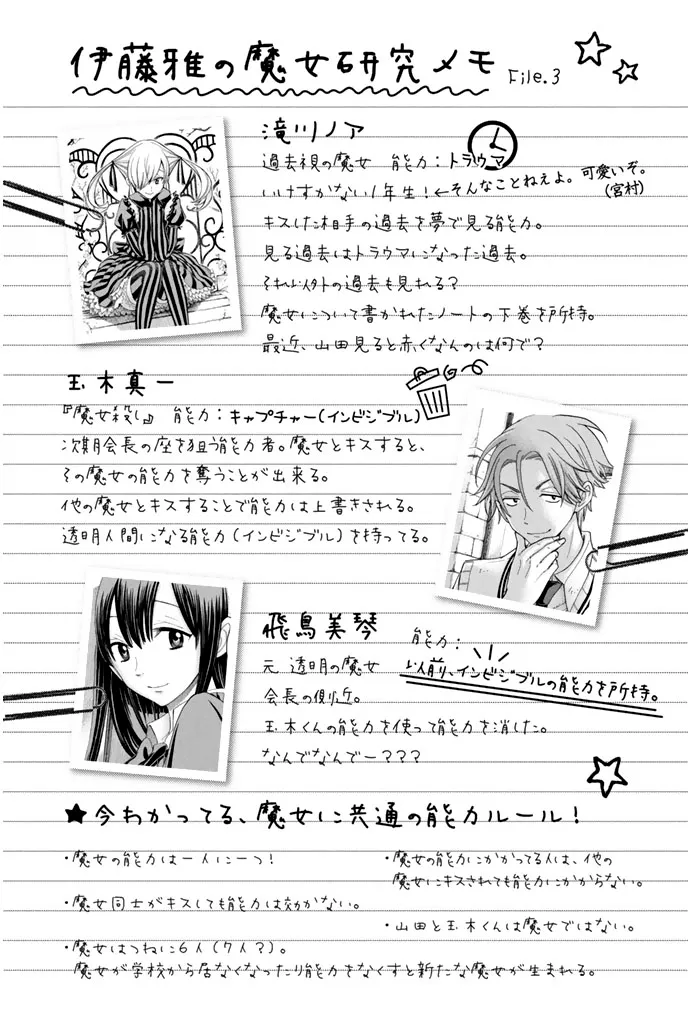 伊藤雅の魔女研究メモ File.3
滝川ノア
過去視の魔女 能力：トラウマ
いけすかない1年生！←そんなことねえよ。可愛いぞ。
(宮村)
キスした相手の過去を夢で見る能力。
見る過去はトラウマになった過去。
それ以外の過去も見れる？
魔女について書かれたノートの下巻を所持。
最近、山田見ると赤くなんのは何で？
玉木真一
『魔女殺し』 能力：キャプチャー(インビジブル)
次期会長の座を狙う能力者。魔女とキスすると、
その魔女の能力を奪うことが出来る。
他の魔女とキスすることで能力は上書きされる。
透明人間になる能力(インビジブル)を持ってる。
飛鳥美琴
能力：
以前、インビジブルの能力を所持。
元 透明の魔女
会長の側近。
玉木くんの能力を使って能力を消した。
なんでなんでー？？？
★今わかってる、魔女に共通の能力ルール！
・魔女の能力は一人に一つ！
・魔女同士がキスしても能力は効かない。
・魔女はつねに6人(7人？)。
魔女が学校から居なくなったり能力をなくすと新たな魔女が生まれる。
・魔女の能力にかかってる人は、他の
魔女にキスされても能力にかからない。
・山田と玉木くんは魔女ではない。